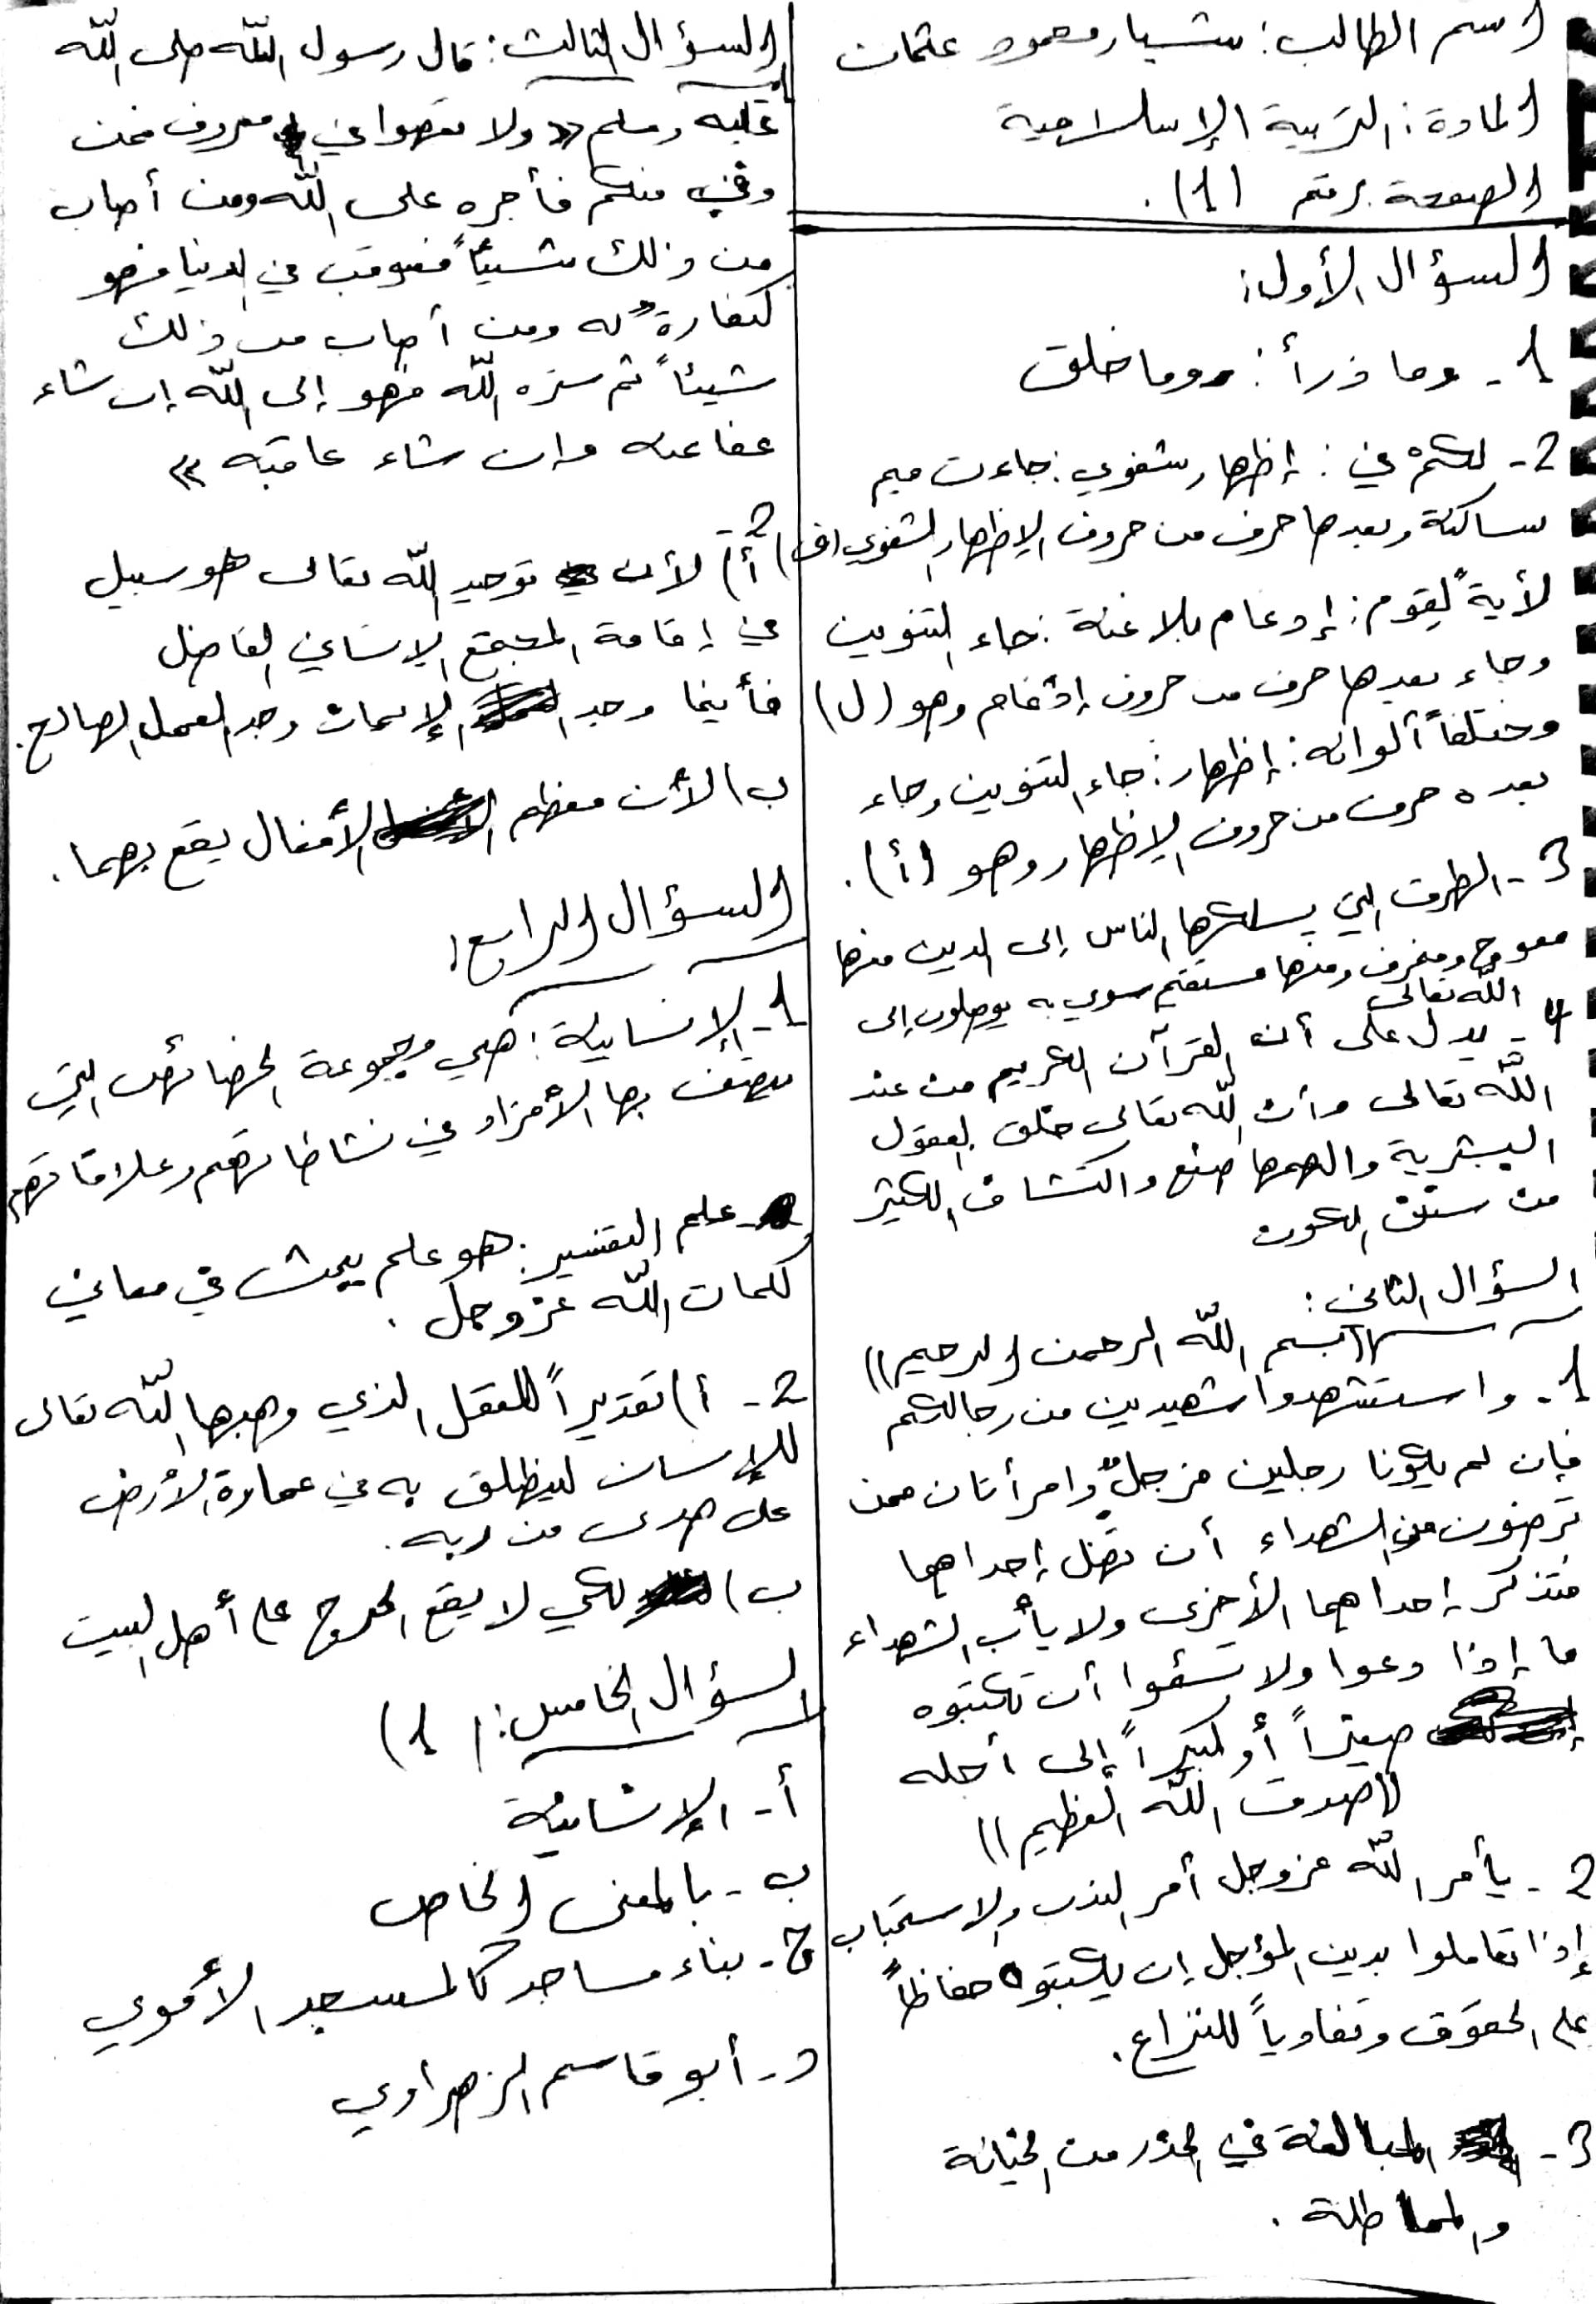 اسم الطالب: شيار محمود عثمان
المادة: التربية الإسلامية
الصفحة رقم (1).
السؤال الأول:
1- وما ذرأ: وما خلق
2- لكم في: إظهار شفوي: جاءت ميم
ساكنة وبعدها حرف من حروف الإظهار الشفوي (ف)
لأيةً لقوم: إدغام بلا غنة: جاء التنوين
وجاء بعدها حرف من حروف إدغام وهو (ل)
مختلفاً ألوانه: إظهار: جاء التنوين وجاء
بعده حرف من حروف الإظهار وهو (أ).
3- الطرق التي يسلكها الناس إلى الدين منها
معوج ومنحرف ومنها مستقيم سوي به يوصلون إلى
الله تعالى
4- يدل على أن القرآن الكريم من عند
الله تعالى وأن الله تعالى خلق العقول
البشرية والهمها صنع واكتشاف الكثير
من سنن الكون
السؤال الثاني:
((بسم الله الرحمن الرحيم))
1- واستشهدوا شهيدين من رجالكم
فإن لم يكونا رجلين فرجلٌ وامرأتان ممن
ترضون من الشهداء أن تضل إحداهما
فتذكر إحداهما الأخرى ولا يأب الشهداء
ما إذا دعوا ولا تسئموا أن تكتبوه
صغيراً أو كبيراً إلى أجله
((صدق الله العظيم))
2- يأمر الله عزوجل أمر الندب والاستحباب
إذا تعاملوا بدين المؤجل إن يكتبوه حفاظاً
على الحقوق وتفادياً للنزاع.
3- المبالغة في الحذر من الخيانة
والمماطلة.
السؤال الثالث: قال رسول الله صلى الله
1-
عليه وسلم «ولا تعصوا في معروف فمن
وفى منكم فأجره على الله ومن أصاب
من ذلك شيئاً فعوقب في الدنيا فهو
كفارةٌ له ومن أصاب من ذلك
شيئاً ثم ستره الله فهو إلى الله إن شاء
عفا عنه وإن شاء عاقبه»
2- أ) لأن توحيد الله تعالى هو سبيل
في إقامة المجتمع الإنساني الفاضل
فأينما وجد الإيمان وجد العمل الصالح.
ب) لأن معظم الأفعال يقع بهما.
السؤال الرابع:
1- الإنسانية: هي مجموعة الخصائص التي
يتصف بها الأفراد في نشاطاتهم وعلاقاتهم
- علم التفسير: هو علم يبحث في معاني
كلمات الله عزوجل.
2- أ) تقديراً للعقل الذي وهبها الله تعالى
للإنسان لينطلق به في عمارة الأرض
على هدى من ربه.
ب) لكي لا يقع الحرج على أهل البيت
السؤال الخامس: (1)
أ- الإنسانية
ب- بالمعنى الخاص
ج- بناء مساجد كالمسجد الأموي
د- أبو قاسم الزهراوي